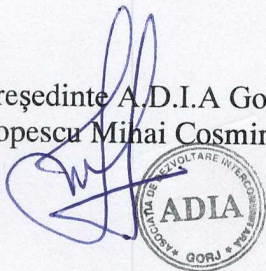 reşedinte A.D.I.A Go
opescu Mihai Cosmin
ASOCIAȚIA DE DEZVOLTARE INTERCOMUNITARĂ
ADIA
* GORJ *